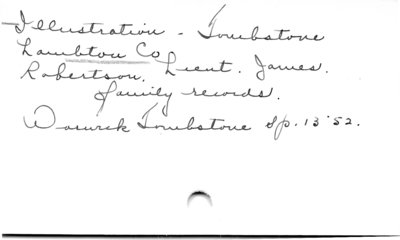 Illustration - Tombstone
Lambton Co
Robertson, Lieut. James.
family records.
Warwick Tombstone Sp. 13 '52.